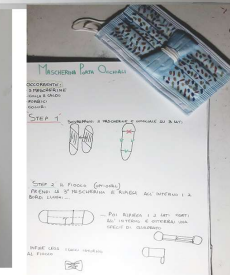 MASCHERINA PORTA OCCHIALI
OCCORRENTE:
3 MASCHERINE
COLLA A CALDO
FORBICI
COLORI
STEP 1
SOVRAPPONI 2 MASCHERINE E INCOLLALE SU 3 LATI
STEP 2 IL FIOCCO (OPTIONAL)
PRENDI LA 3° MASCHERINA E RIPIEGA ALL'INTERNO I 2
BORDI LUNGHI...
... POI RIPIEGA I 2 LATI CORTI
ALL'INTERNO E OTTERRAI UNA
SPECIE DI QUADRATO
AL FIOCCO